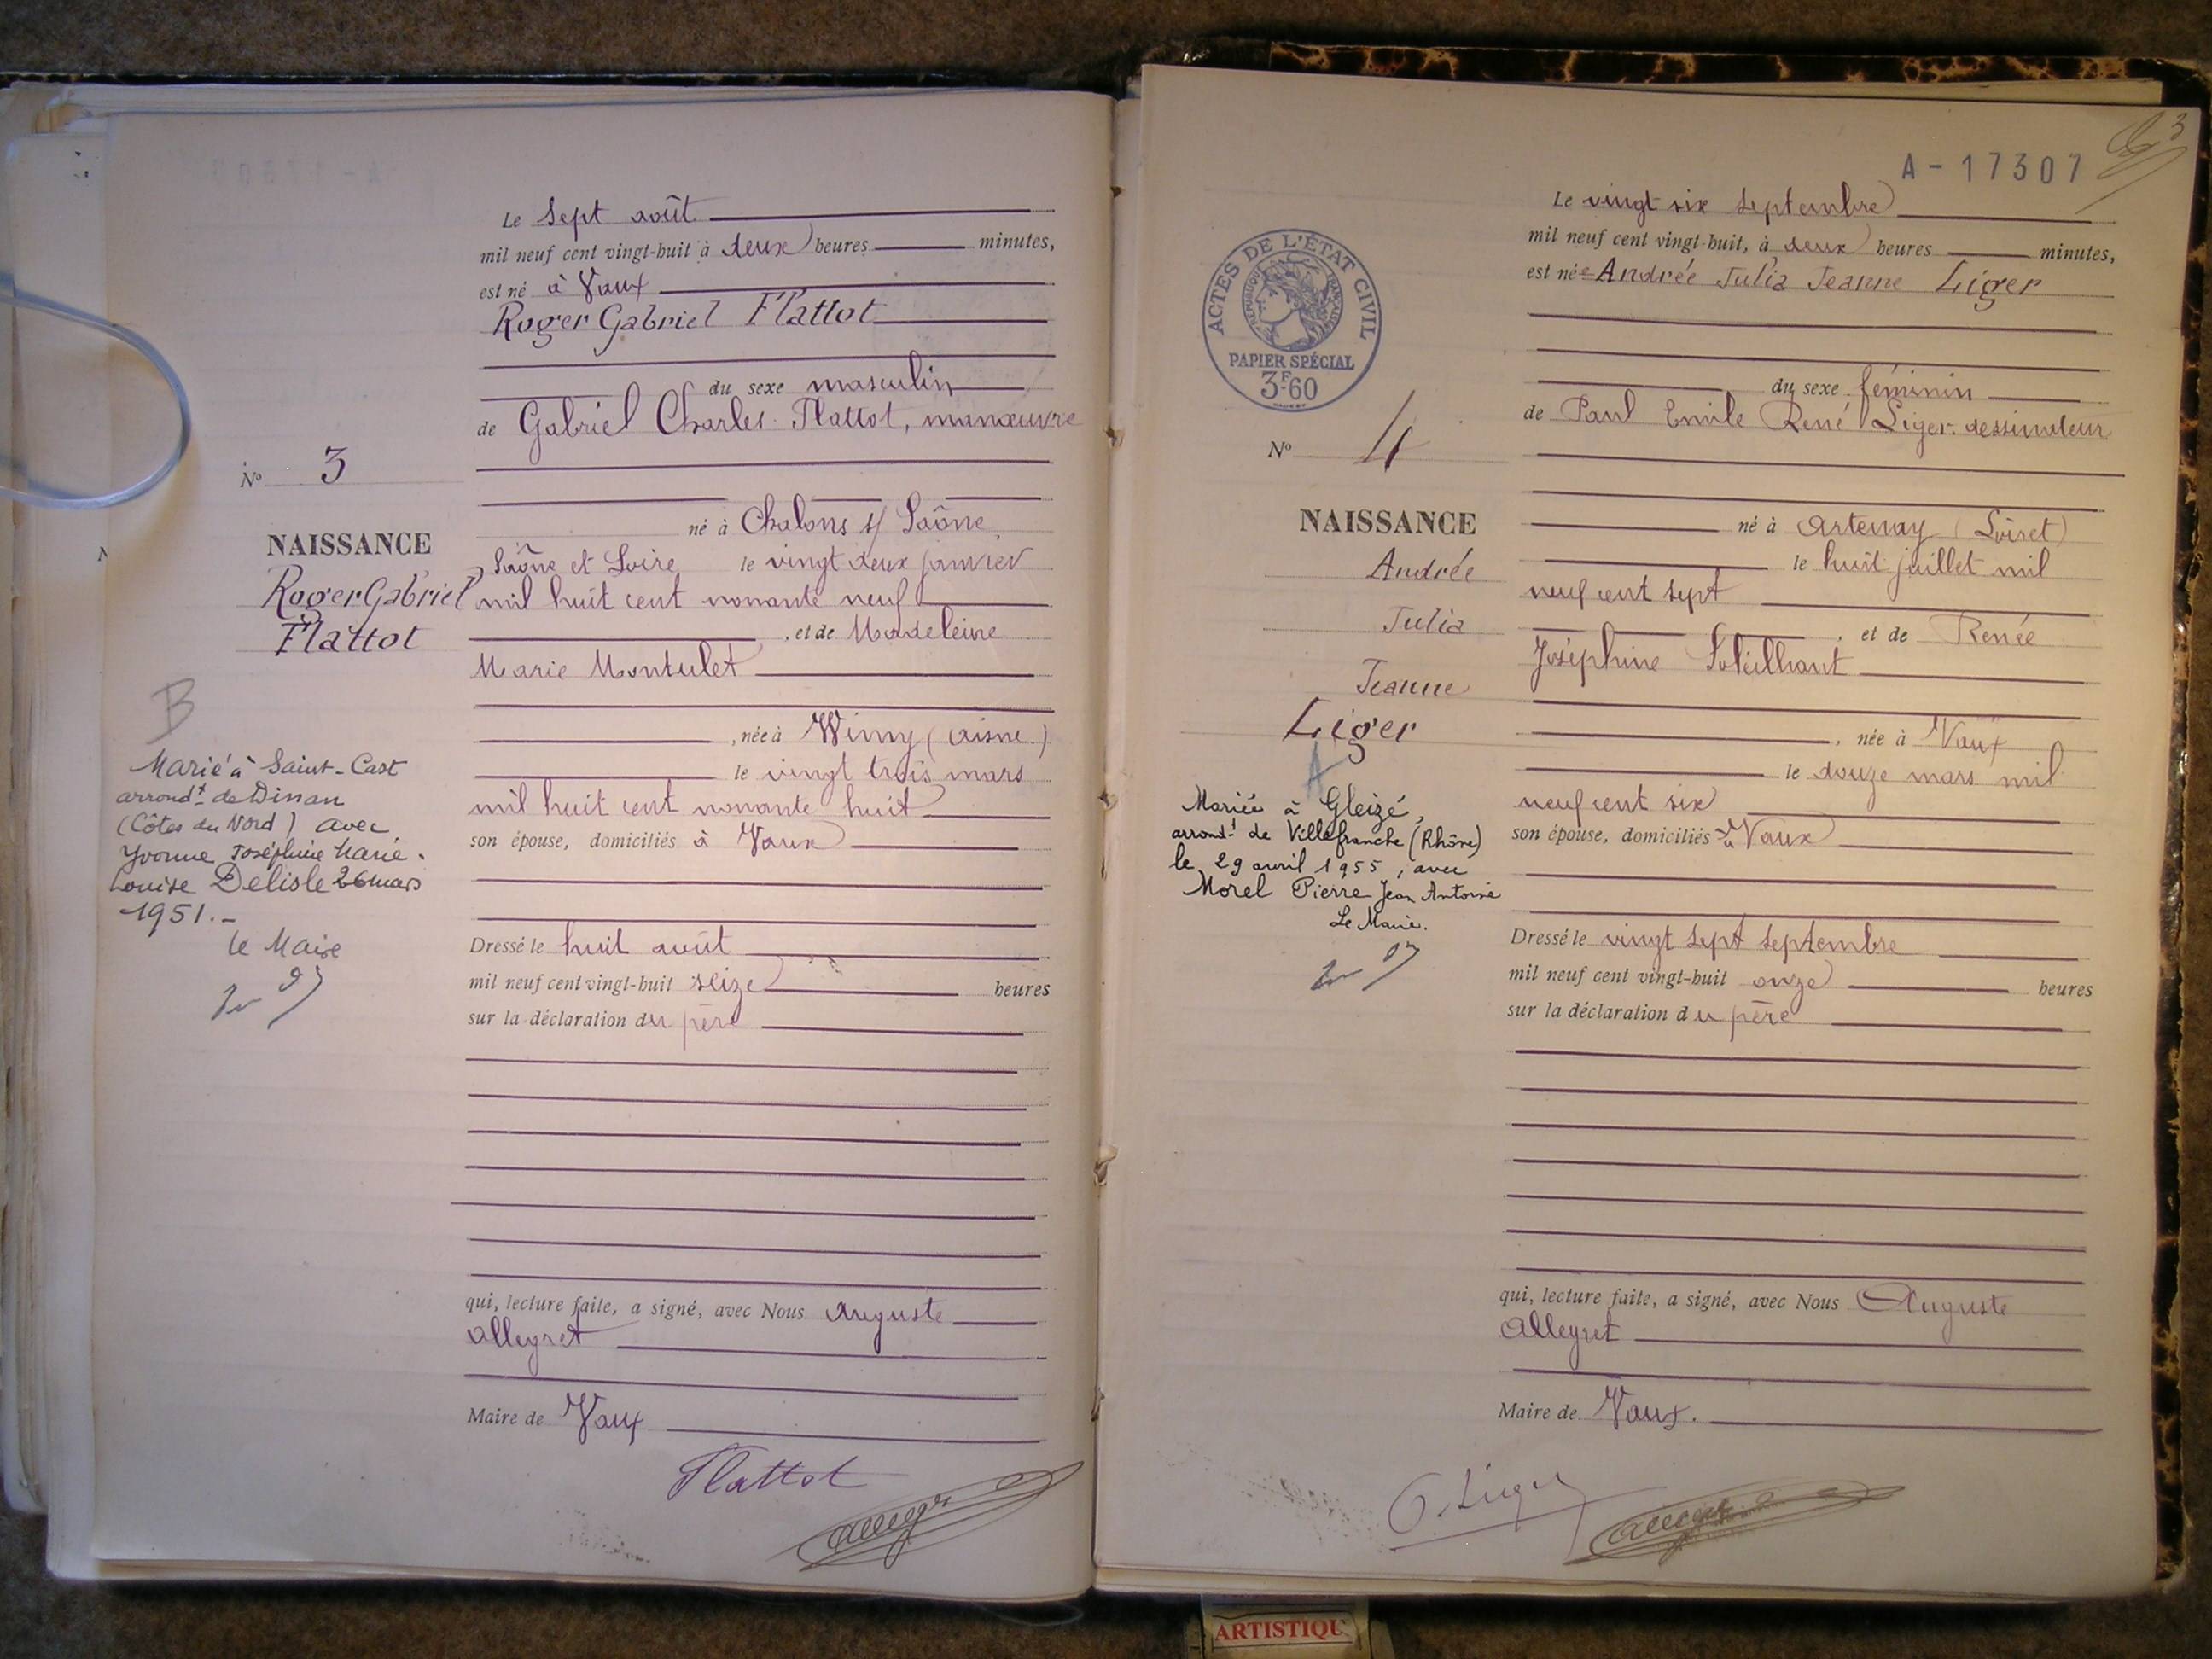 Le sept août
mil neuf cent vingt-huit à deux heures minutes,
est né à Vaux
Roger Gabriel Flattot
du sexe masculin
de Gabriel Charles Flattot, manœuvre
né à Chalons s/ Saône
Saône et Loire le vingt deux janvier
mil huit cent nonante neuf
, et de Madeleine
Marie Montulet
, née à Wimy (Aisne)
le vingt trois mars
mil huit cent nonante huit
son épouse, domiciliés à Vaux
Dressé le huit août
mil neuf cent vingt-huit seize heures
sur la déclaration du père
qui, lecture faite, a signé, avec Nous Auguste
Allegret
Maire de Vaux
Flattot
No 3
NAISSANCE
Roger Gabriel
Flattot
B
Marié à Saint-Cast
arrondt de Dinan
(Côtes du Nord) avec
Yvonne Joséphine Marie
Louise Delisle 26 mars
1951.-
le Maire
A-17307
3
Le vingt six septembre
mil neuf cent vingt-huit, à deux heures minutes,
est née Andrée Julia Jeanne Liger
du sexe féminin
de Paul Emile René Liger dessinateur
né à Artenay (Loiret)
le huit juillet mil
neuf cent sept
, et de Renée
Joséphine
, née à Vaux
le douze mars mil
neuf cent six
son épouse, domiciliés à Vaux
Dressé le vingt sept septembre
mil neuf cent vingt-huit onze heures
sur la déclaration du père
qui, lecture faite, a signé, avec Nous Auguste
Allegret
Maire de Vaux.
ACTES DE L'ÉTAT CIVIL
RÉPUBLIQUE FRANÇAISE
PAPIER SPÉCIAL
3F60
No 4
NAISSANCE
Andrée
Julia
Jeanne
Liger
A
Mariée à Gleizé,
arrondt de Villefranche (Rhône)
le 29 avril 1955, avec
Morel Pierre Jean Antoine
Le Maire.
P. Liger
ARTISTIQU